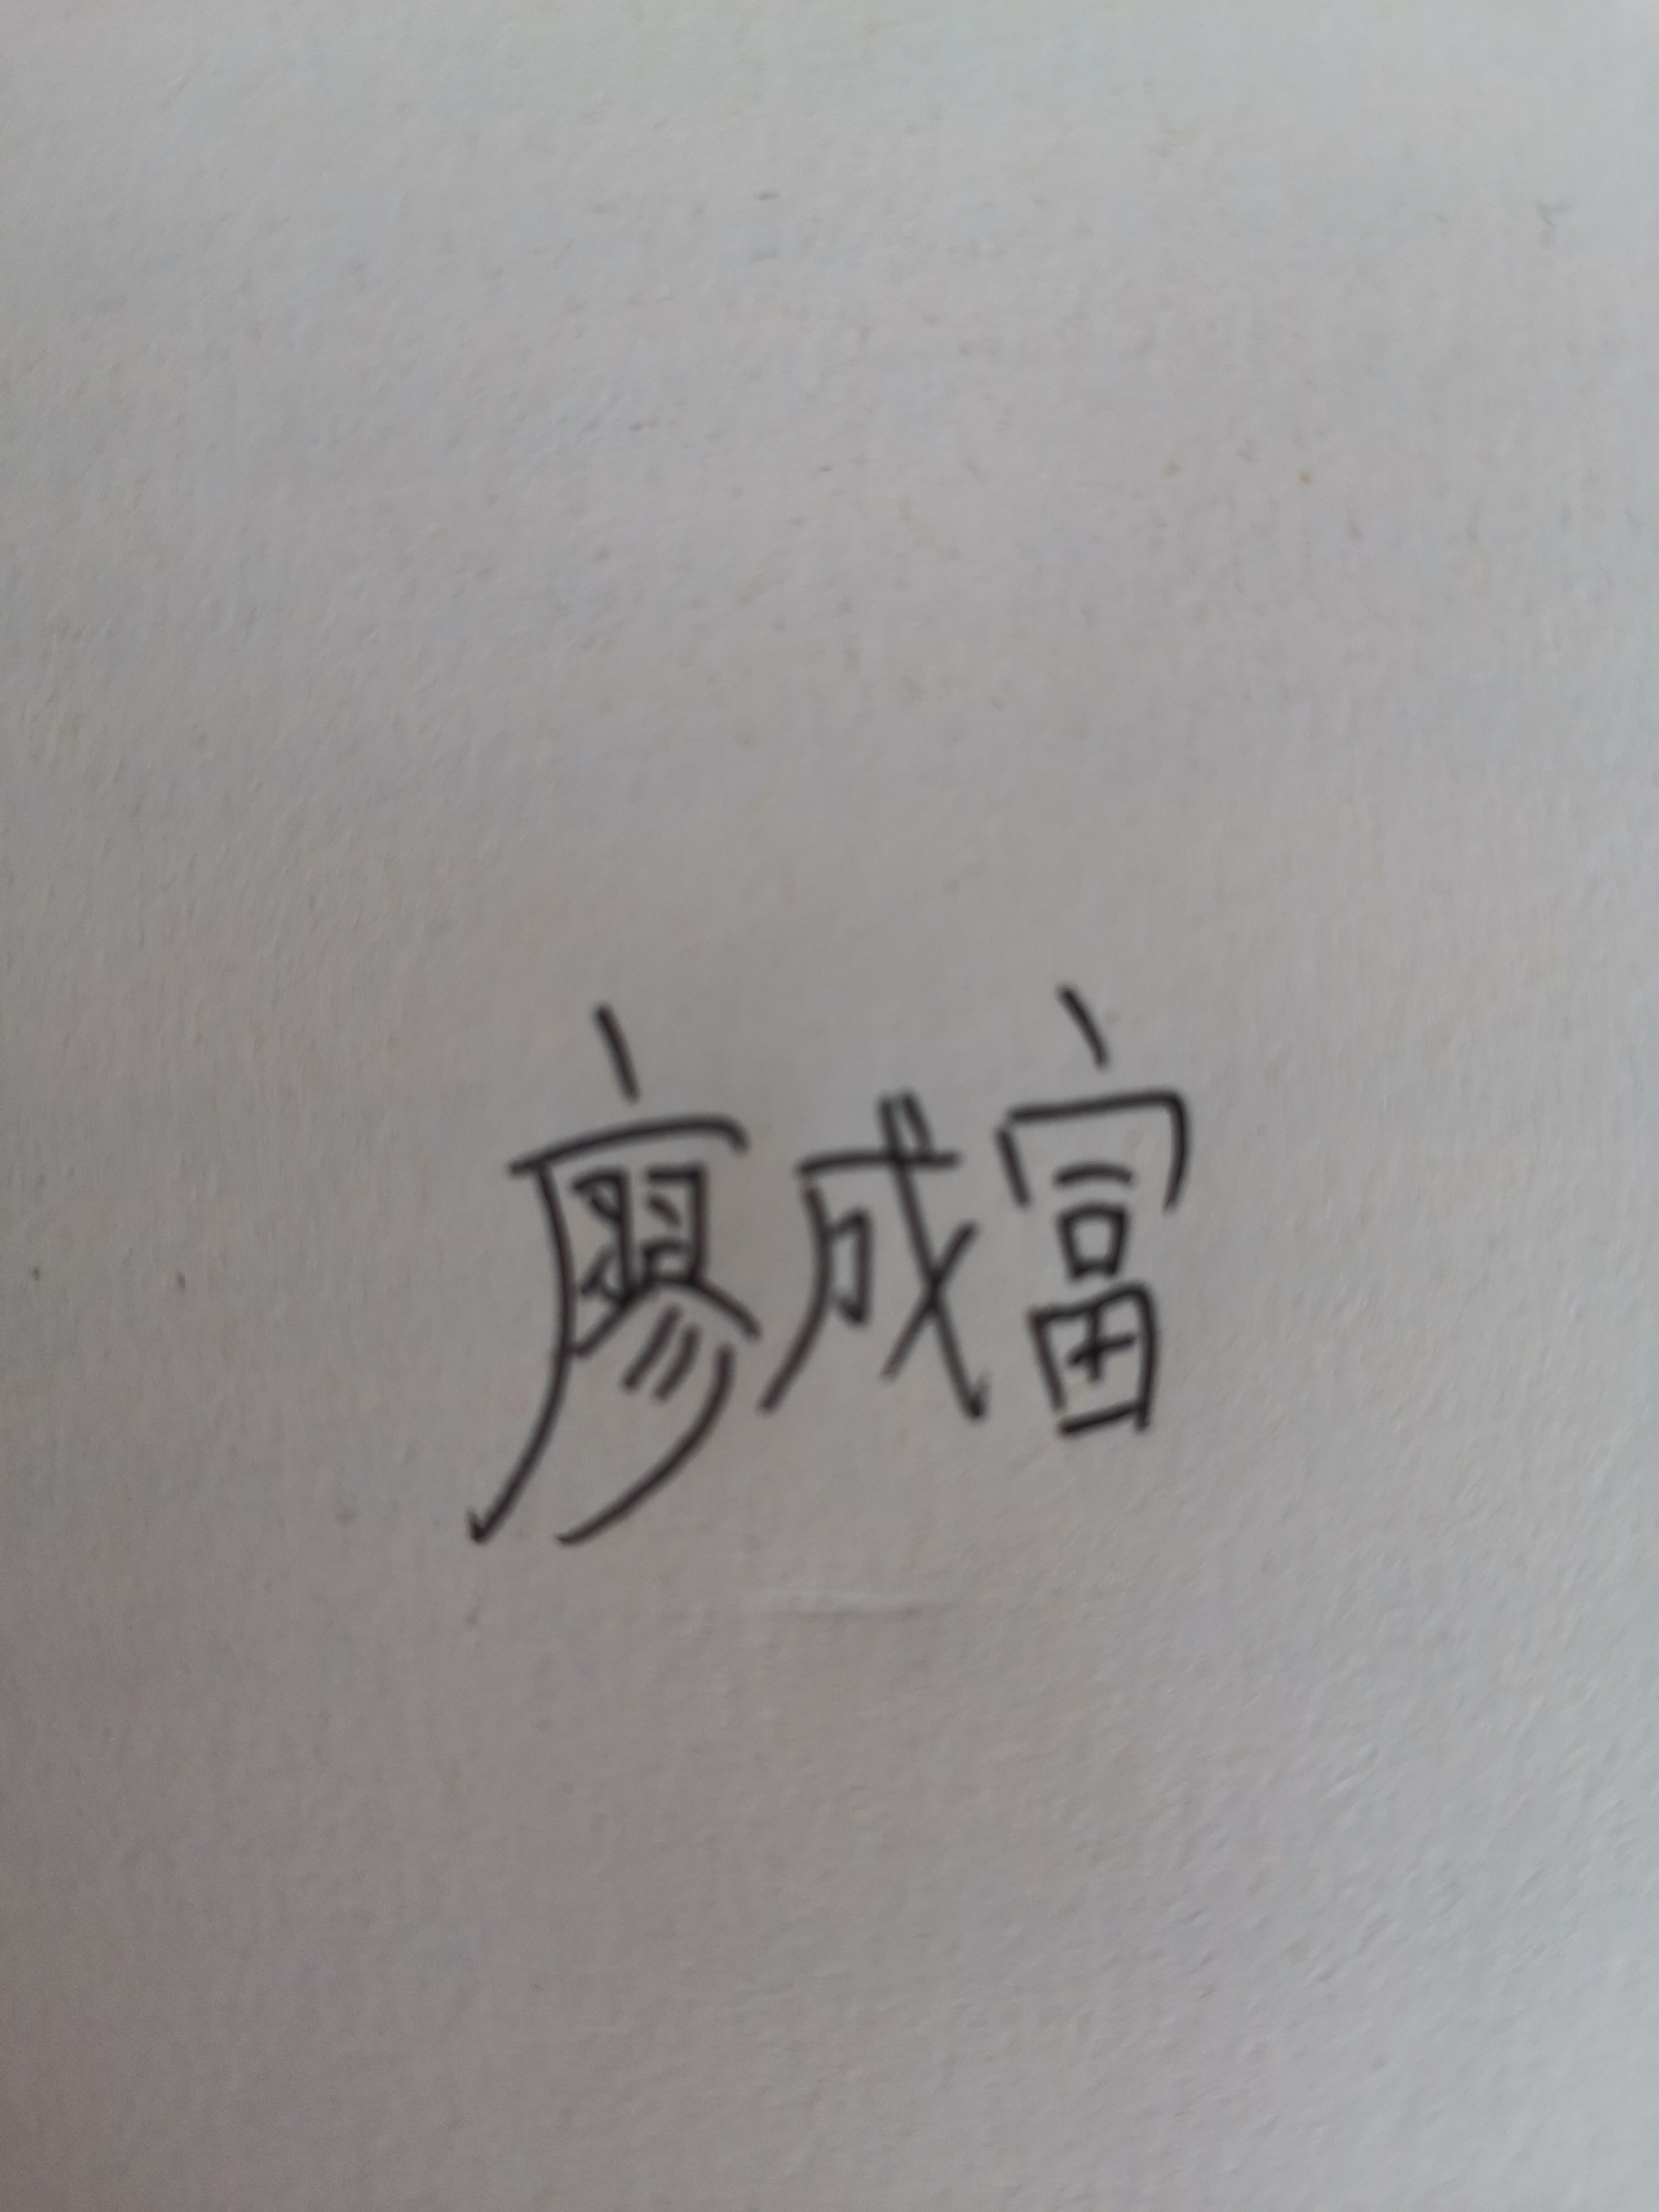 廖成富